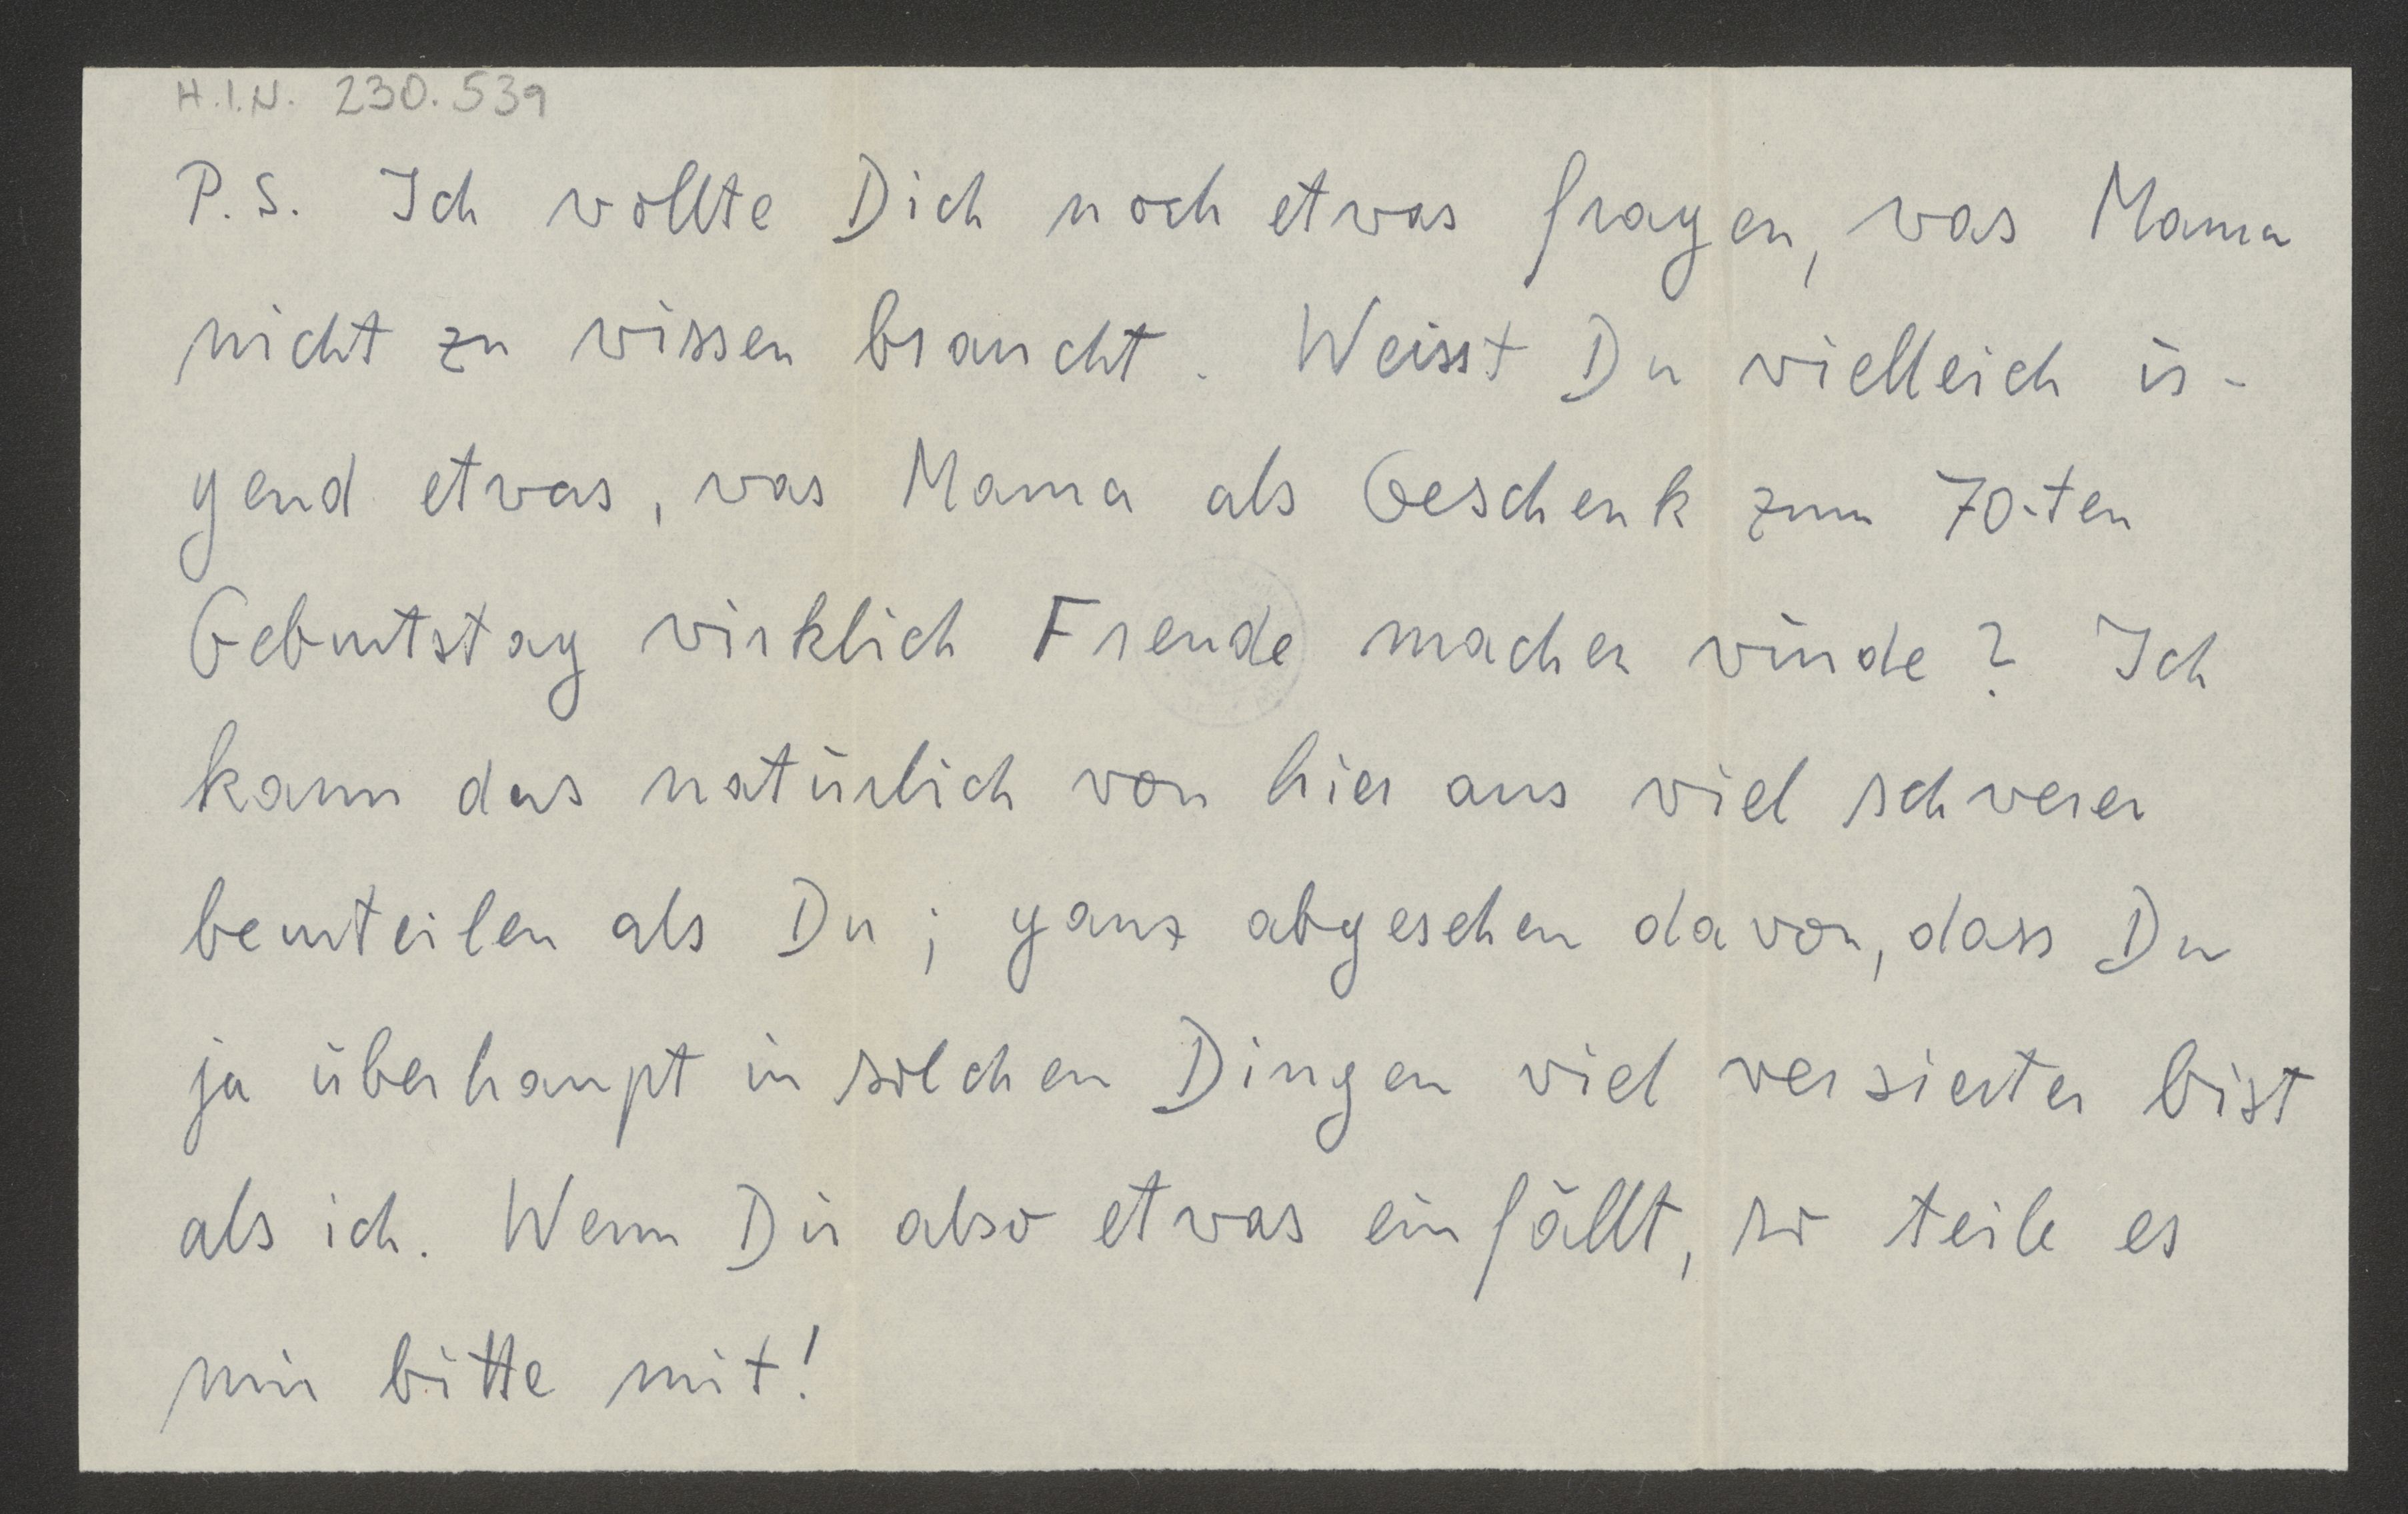 H.I.N. 230.539
P.S. Ich wollte Dich noch etwas fragen, was Mama
nicht zu wissen braucht. Weisst Du vielleich ir-
gend etwas, was Mama als Geschenk zum 70-ten
Geburtstag wirklich Freude machen würde? Ich
kann das natürlich von hier aus viel schwerer
beurteilen als Du; ganz abgesehen davon, dass Du
ja überhaupt in solchen Dingen viel versierter bist
als ich. Wenn Dir also etwas einfällt, so teile es
mir bitte mit!